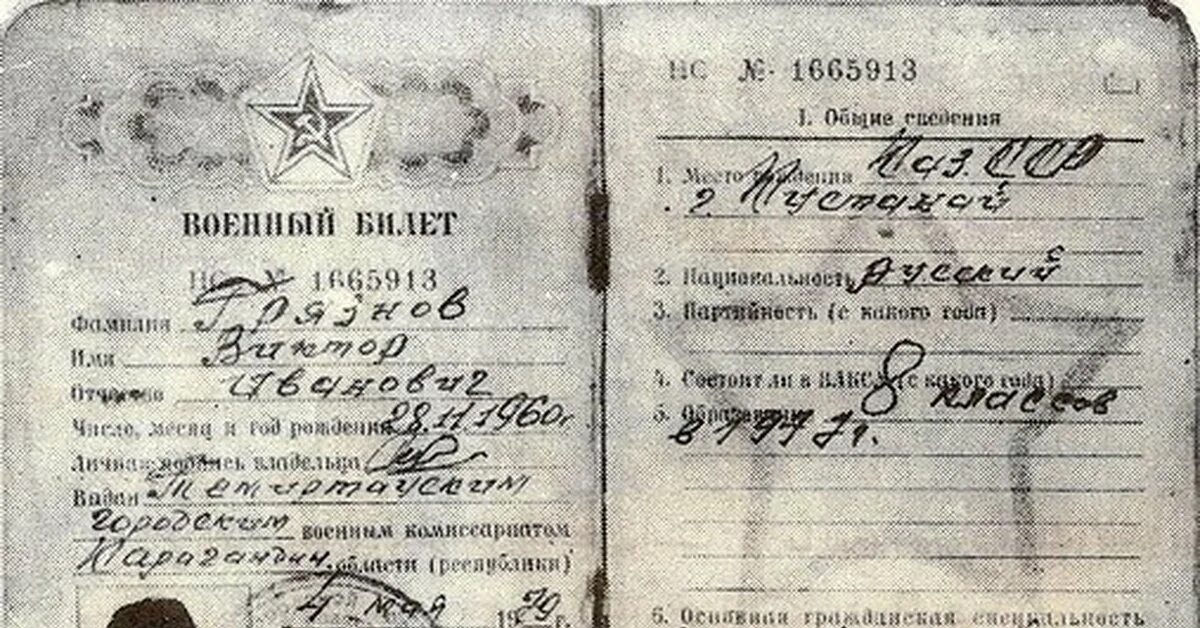 ВОЕННЫЙ БИЛЕТ
НС № 1665913
Фамилия Грязнов
Имя Виктор
Отчество Иванович
Число, месяц и год рождения 28.11.1960г
Личная подпись владельца
Выдан Темиртауским
городским военным комиссариатом
Карагандин. области (республики)
4 мая 1979 г.
НС № 1665913
I. Общие сведения
1. Место рождения Каз. ССР
г. Кустанай
2. Национальность Русский
3. Партийность (с какого года)
4. Состоит ли в ВЛКСМ (с какого года)
5. Образование 8 классов
в 1977г.
6. Основная гражданская специальность